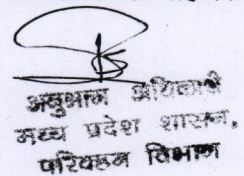 अनुभाग अधिकारी
मध्य प्रदेश शासन,
परिवहन विभाग